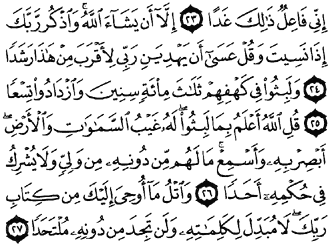 إِنِّي فَاعِلٌ ذَٰلِكَ غَدًا ٢٣ إِلَّا أَن يَشَاءَ ٱللَّهُ وَٱذْكُر رَّبَّكَ
إِذَا نَسِيتَ وَقُلْ عَسَىٰ أَن يَهْدِيَنِ رَبِّي لِأَقْرَبَ مِنْ هَٰذَا رَشَدًا
٢٤ وَلَبِثُوا۟ فِي كَهْفِهِمْ ثَلَٰثَ مِا۟ئَةٍ سِنِينَ وَٱزْدَادُوا۟ تِسْعًا
٢٥ قُلِ ٱللَّهُ أَعْلَمُ بِمَا لَبِثُوا۟ لَهُۥ غَيْبُ ٱلسَّمَٰوَٰتِ وَٱلْأَرْضِ
أَبْصِرْ بِهِۦ وَأَسْمِعْ مَا لَهُم مِّن دُونِهِۦ مِن وَلِيٍّ وَلَا يُشْرِكُ
فِي حُكْمِهِۦٓ أَحَدًا ٢٦ وَٱتْلُ مَآ أُوحِيَ إِلَيْكَ مِن كِتَابِ
رَبِّكَ لَا مُبَدِّلَ لِكَلِمَٰتِهِۦ وَلَن تَجِدَ مِن دُونِهِۦ مُلْتَحَدًا ٢٧